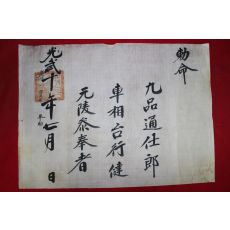 勅命
九品通仕郎
車相台行健
元陵叅奉者
光武十年七月 日